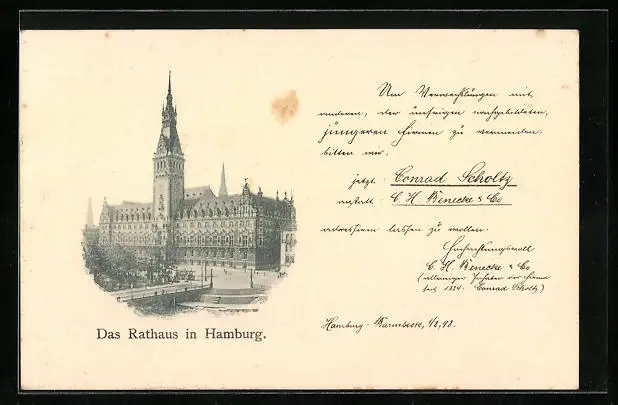 Um Verwechslungen mit
anderen, der unsrigen nachgebildeten,
jüngeren Firmen zu vermeiden,
bitten wir,
jetzt Conrad Scholtz
anstatt C. H. Benecke & Co
adressieren lassen zu wollen.
Hochachtungsvoll
C. H. Benecke & Co
(alleiniger Inhaber der Firma
seit 1884. Conrad Scholtz)
Das Rathaus in Hamburg.
Hamburg-Barmbeck, 1/2.98.